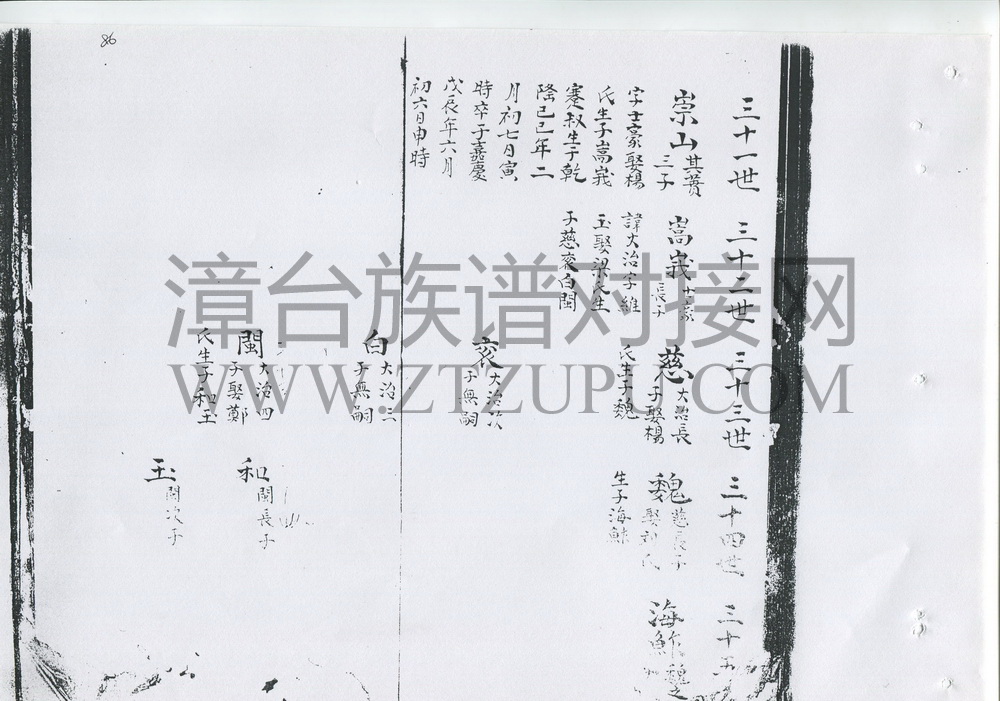 86
三十一世
崇山
其蕢
三子
字士豪娶楊
氏生子嵩峩
蹇叔生于乾
隆己巳年二
月初七日寅
時卒于嘉慶
戊辰年六月
初六日申時
三十二世
嵩峩
士豪
長子
諱大治字維
玉娶梁氏生
子慈衮白閩
三十三世
慈
大治長
子娶楊
氏生子魏
衮
大治次
子無嗣
白
大治三
子無嗣
閩
大治四
子娶鄭
氏生子和玉
三十四世
魏
慈長子
娶刘氏
生子海
和
閩長子
玉
閩次子
三十五
海
魏之
漳台族谱对接网
WWW.ZTZUPU.COM